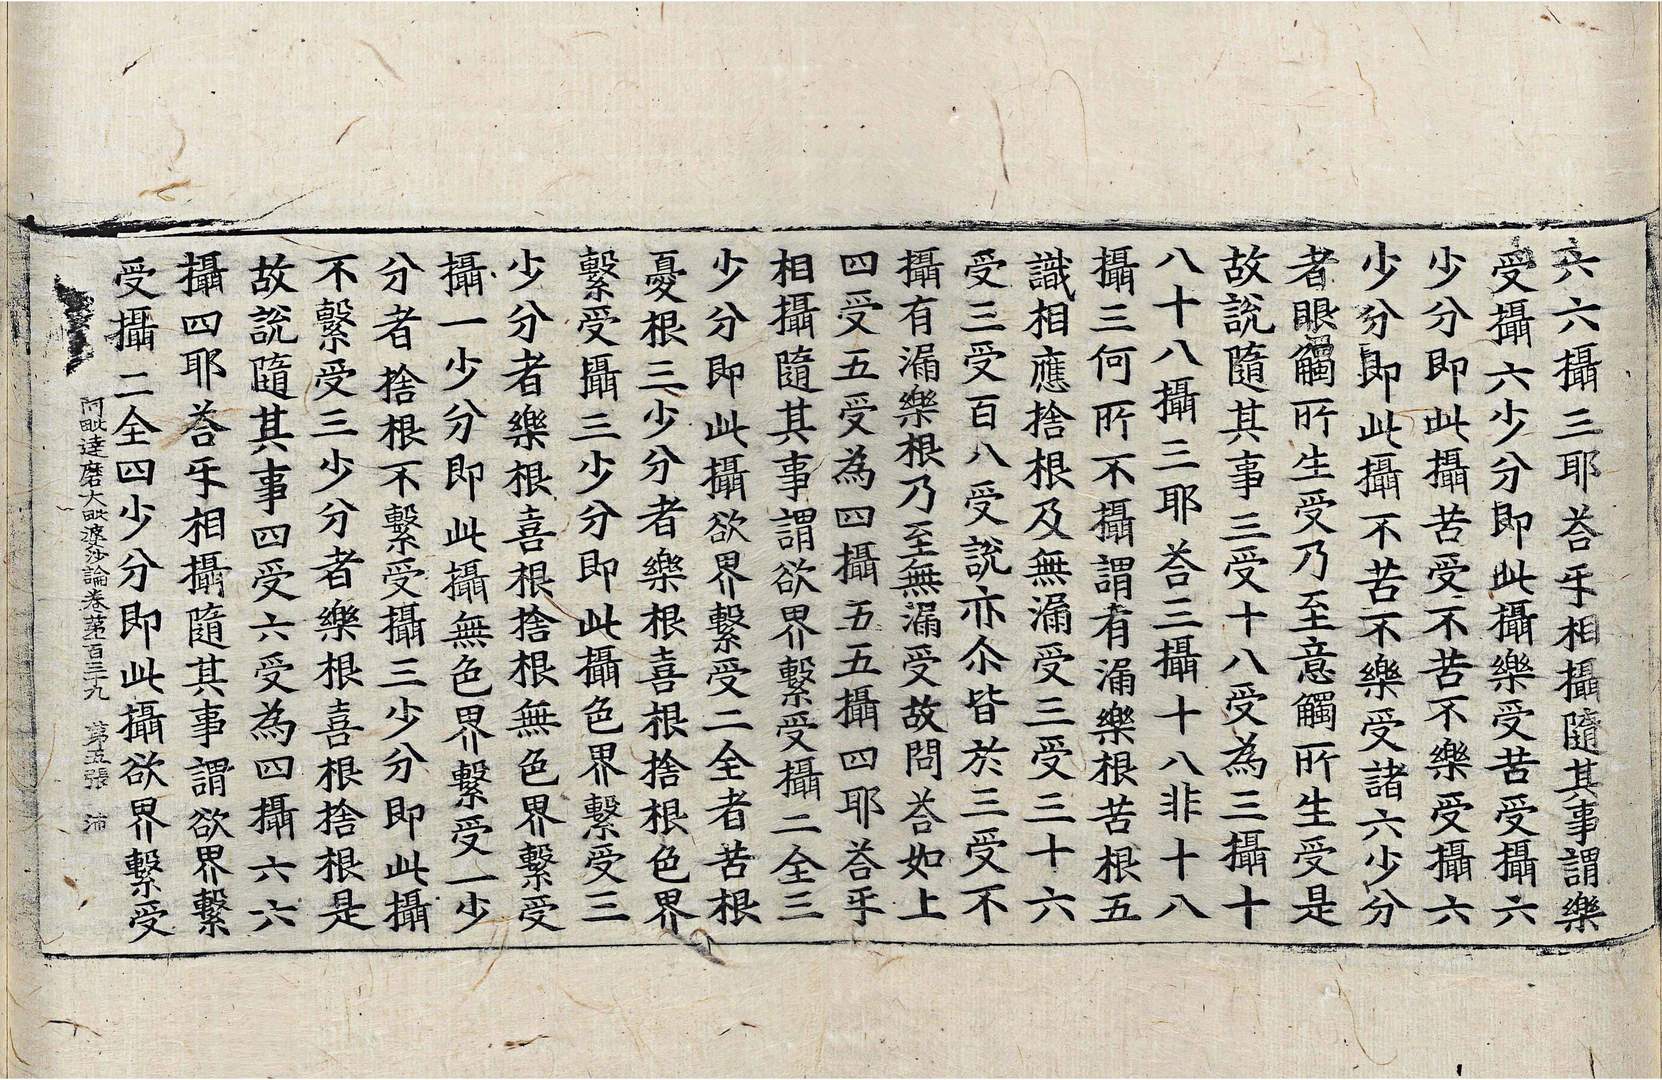 六六攝三耶荅㸦相攝隨其事謂樂
受攝六少分即此攝樂受苦受攝六
少分即此攝苦受不苦不樂受攝六
少分即此攝不苦不樂受諸六少分
者眼觸所生受乃至意觸所生受是
故說隨其事三受十八受為三攝十
八十八攝三耶荅三攝十八非十八
攝三何所不攝謂有漏樂根苦根五
識相應捨根及無漏受三受三十六
受三受百八受說亦尒皆於三受不
攝有漏樂根乃至無漏受故問荅如上
四受五受為四攝五五攝四耶荅㸦
相攝隨其事謂欲界繫受攝二全三
少分即此攝欲界繫受二全者苦根
憂根三少分者樂根喜根捨根色界
繫受攝三少分即此攝色界繫受三
少分者樂根喜根捨根無色界繫受
攝一少分即此攝無色界繫受一少
分者捨根不繫受攝三少分即此攝
不繫受三少分者樂根喜根捨根是
故說隨其事四受六受為四攝六六
攝四耶荅㸦相攝隨其事謂欲界繫
受攝二全四少分即此攝欲界繫受
阿毗達磨大毗婆沙論卷第一百三十九 第五張 沛